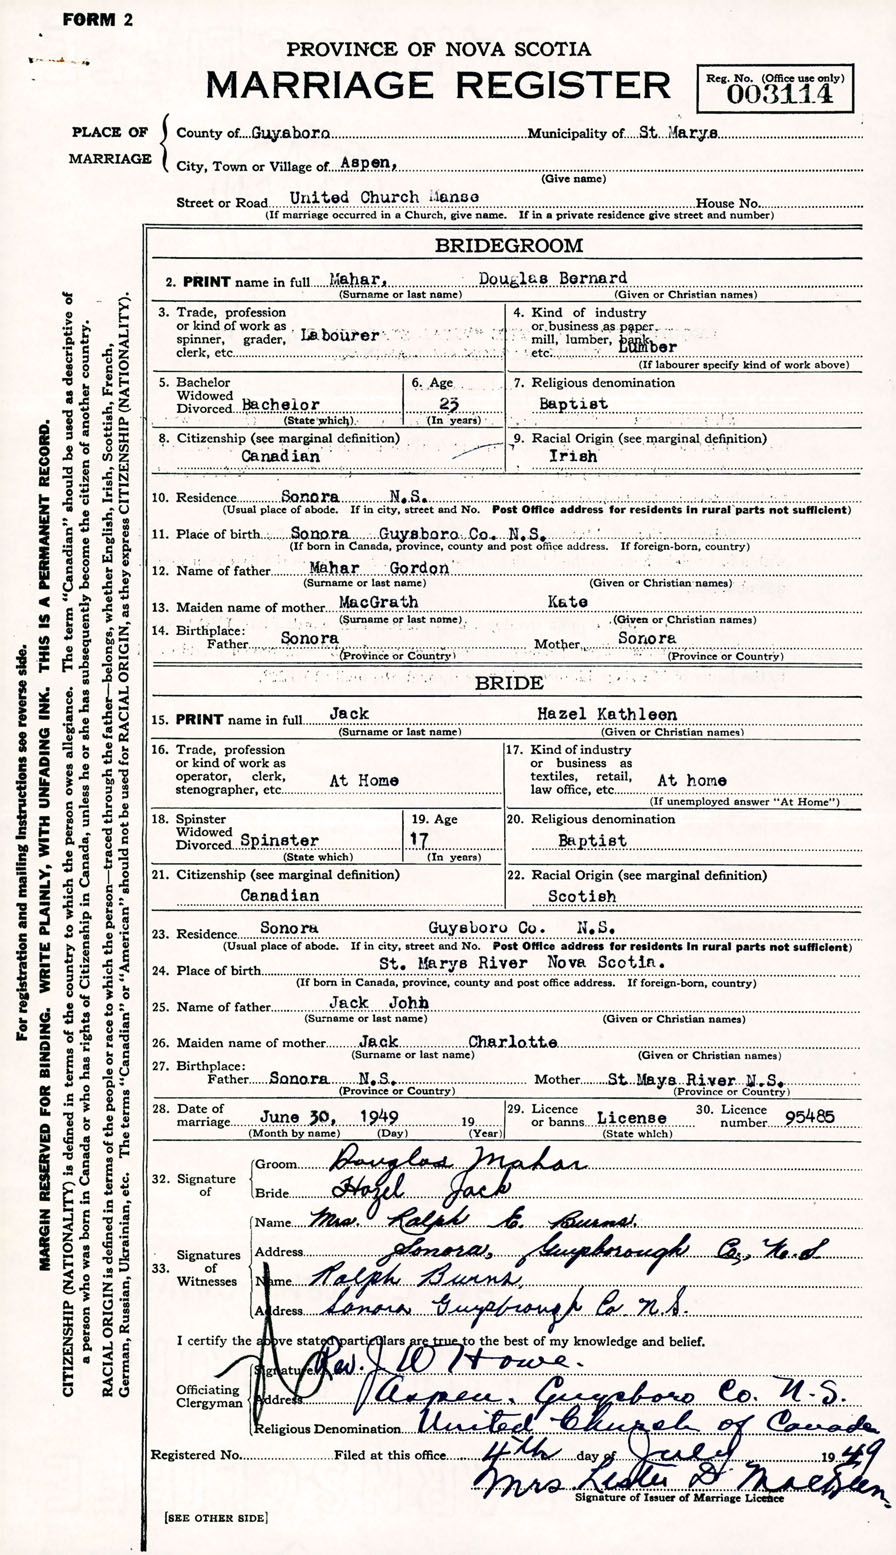 FORM 2
PROVINCE OF NOVA SCOTIA
MARRIAGE REGISTER
Reg. No. (Office use only)
003114
PLACE OF MARRIAGE
County of Guysboro Municipality of St Marys
City, Town or Village of Aspen,
(Give name)
Street or Road United Church Manse House No.
(If marriage occurred in a Church, give name. If in a private residence give street and number)
BRIDEGROOM
2. PRINT name in full Mahar, Douglas Bernard
(Surname or last name) (Given or Christian names)
3. Trade, profession or kind of work as spinner, grader, clerk, etc. Labourer
4. Kind of industry or business as paper mill, lumber, bank, etc. Lumber
(If labourer specify kind of work above)
5. Bachelor Widowed Divorced Bachelor
(State which)
6. Age 23
(In years)
7. Religious denomination
Baptist
8. Citizenship (see marginal definition)
Canadian
9. Racial Origin (see marginal definition)
Irish
10. Residence Sonora N.S.
(Usual place of abode. If in city, street and No. Post Office address for residents in rural parts not sufficient)
11. Place of birth Sonora Guysboro Co. N.S.
(If born in Canada, province, county and post office address. If foreign-born, country)
12. Name of father Mahar Gordon
(Surname or last name) (Given or Christian names)
13. Maiden name of mother MacGrath Kate
(Surname or last name) (Given or Christian names)
14. Birthplace:
Father Sonora Mother Sonora
(Province or Country) (Province or Country)
BRIDE
15. PRINT name in full Jack Hazel Kathleen
(Surname or last name) (Given or Christian names)
16. Trade, profession or kind of work as operator, clerk, stenographer, etc. At Home
17. Kind of industry or business as textiles, retail, law office, etc. At home
(If unemployed answer "At Home")
18. Spinster Widowed Divorced Spinster
(State which)
19. Age
17
(In years)
20. Religious denomination
Baptist
21. Citizenship (see marginal definition)
Canadian
22. Racial Origin (see marginal definition)
Scotish
23. Residence Sonora Guysboro Co. N.S.
(Usual place of abode. If in city, street and No. Post Office address for residents in rural parts not sufficient)
24. Place of birth St. Marys River Nova Scotia.
(If born in Canada, province, county and post office address. If foreign-born, country)
25. Name of father Jack John
(Surname or last name) (Given or Christian names)
26. Maiden name of mother Jack Charlotte
(Surname or last name) (Given or Christian names)
27. Birthplace:
Father Sonora N.S. Mother St Mays River N.S.
(Province or Country) (Province or Country)
28. Date of marriage June 30, 1949 19
(Month by name) (Day) (Year)
29. Licence or banns License
(State which)
30. Licence number 95485
32. Signature of
Groom Douglas Mahar
Bride Hazel Jack
33. Signatures of Witnesses
Name Mrs. Ralph E. Burns.
Address Sonora, Guysborough Co., N.S
Name Ralph Burns,
Address Sonora Guysbrough Co N.S.
I certify the above stated particulars are true to the best of my knowledge and belief.
Officiating Clergyman
Signature Rev. J W Howe.
Address Aspen. Guysboro Co. N.S.
Religious Denomination United Church of Canada
Registered No. Filed at this office 4th day of July 1949
Mrs Lester D.
Signature of Issuer of Marriage Licence
[SEE OTHER SIDE]
For registration and mailing instructions see reverse side.
MARGIN RESERVED FOR BINDING. WRITE PLAINLY, WITH UNFADING INK. THIS IS A PERMANENT RECORD.
CITIZENSHIP (NATIONALITY) is defined in terms of the country to which the person owes allegiance. The term "Canadian" should be used as descriptive of
a person who was born in Canada or who has rights of Citizenship in Canada, unless he or she has subsequently become the citizen of another country.
RACIAL ORIGIN is defined in terms of the people or race to which the person—traced through the father—belongs, whether English, Irish, Scottish, French,
German, Russian, Ukrainian, etc. The terms "Canadian" or "American" should not be used for RACIAL ORIGIN, as they express CITIZENSHIP (NATIONALITY).